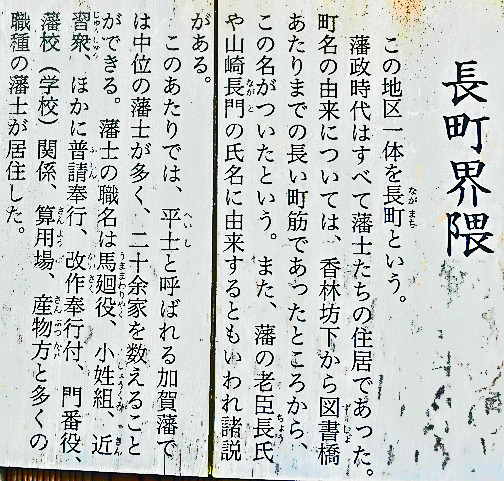 長町界隈
この地区一体を長町という。
藩政時代はすべて藩士たちの住居であった。
町名の由来については、香林坊下から図書橋
あたりまでの長い町筋であったところから、
この名がついたという。また、藩の老臣長氏
や山崎長門の氏名に由来するともいわれ諸説
がある。
このあたりでは、平士と呼ばれる加賀藩で
は中位の藩士が多く、二十余家を数えること
ができる。藩士の職名は馬廻役、小姓組、近
習衆、ほかに普請奉行、改作奉行付、門番役、
藩校（学校）関係、算用場、産物方と多くの
職種の藩士が居住した。